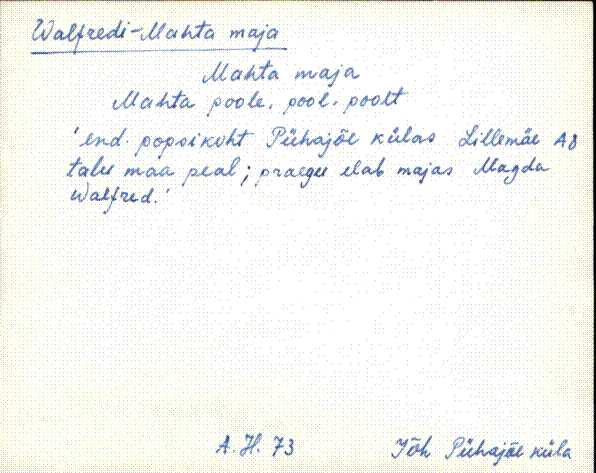 Walfredi-Mahta maja
Mahta maja
Mahta poole, pool, poolt
'end. popsikoht Pühajõe külas Lillemäe A8
talu maa peal; praegu elab majas Magda
Walfred.'
A.H. 73 Jõh Pühajõe küla